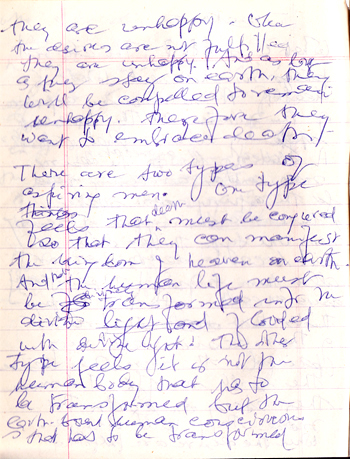 they are unhappy. When
the desires are not fulfilled
they are unhappy. And as long
as they stay on earth, they
will be compelled to remain
unhappy. Therefore they
want to embrace death.
There are two types of
aspiring men. One type
feels that death must be conquered
so that they can manifest
the kingdom of heaven on earth.
And the human life must
be transformed into the
divine light and flooded
with divine light. The other
type feels it is not the
human body that has to
be transformed but the
earth-bound human consciousness
that has to be transformed